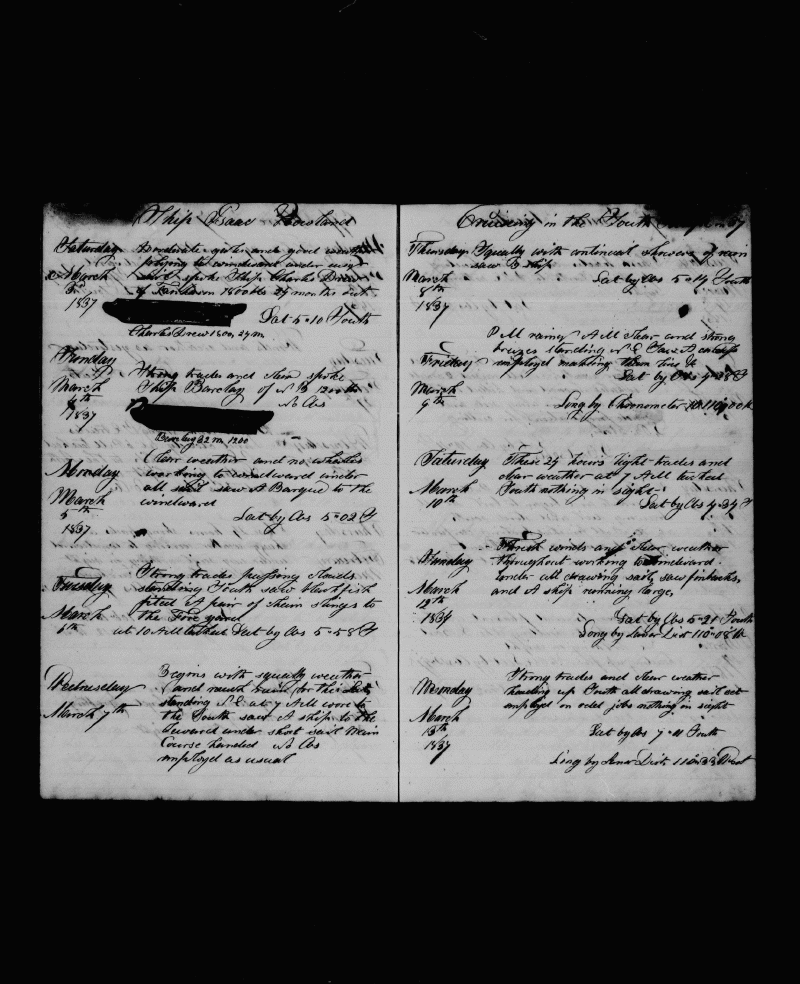 Ship Isaac Howland
Saturday
March
3
1837
Moderate gales and good weather
plying to windward under
spoke Ship Charles Drew
of 1800 bbls 27 months out
Lat 5=10 South
Charles Drew 1800, 27 m
Sunday
March
4th
1837
Strong trades and clear spoke
Ship Barclay of N B 1200
No Obs
Barclay 32 m 1200
Monday
March
5th
1837
Clear weather and no whales
working to windward under
all sail saw A Barque to the
windward
Lat by Obs 5=02 S
Tuesday
March
6th
Strong trades passing clouds
standing South saw blackfish
fited A pair of slings to
the Fore yard
at 10 AM tacked Lat by Obs 5=58 S
Wednesday
March 7th
Begins with squally weather
and much rain for the
standing N E at 7 AM wore to
the South saw A ship to the
leeward under short sail Main
Course handed No Obs
employed as usual
Cruising in the South
Thursday
March
8th
1837
Squally with continual showers of rain
saw A ship
Lat by Obs 5=14 South
Friday
March
9th
P M rainy A M clear and strong
breezes standing N E
employed making
Lat by Obs 4=38 S
Long by Chronometer
Saturday
March
10th
These 24 hours light trades and
clear weather at 7 AM tacked
South nothing in sight
Lat by Obs 4=34 S
Sunday
March
12th
1837
Fresh winds and clear weather
throughout working to windward
under all drawing sail, saw finbacks,
and A ship running large,
Lat by Obs 5=21 South
Long by Lunar Dist 110=08 W
Monday
March
13th
1837
Strong trades and clear weather
heading up South all drawing sail set
employed on odd jobs nothing in sight
Lat by Obs 7=11 South
Long by Lunar Dist. 110=33 West